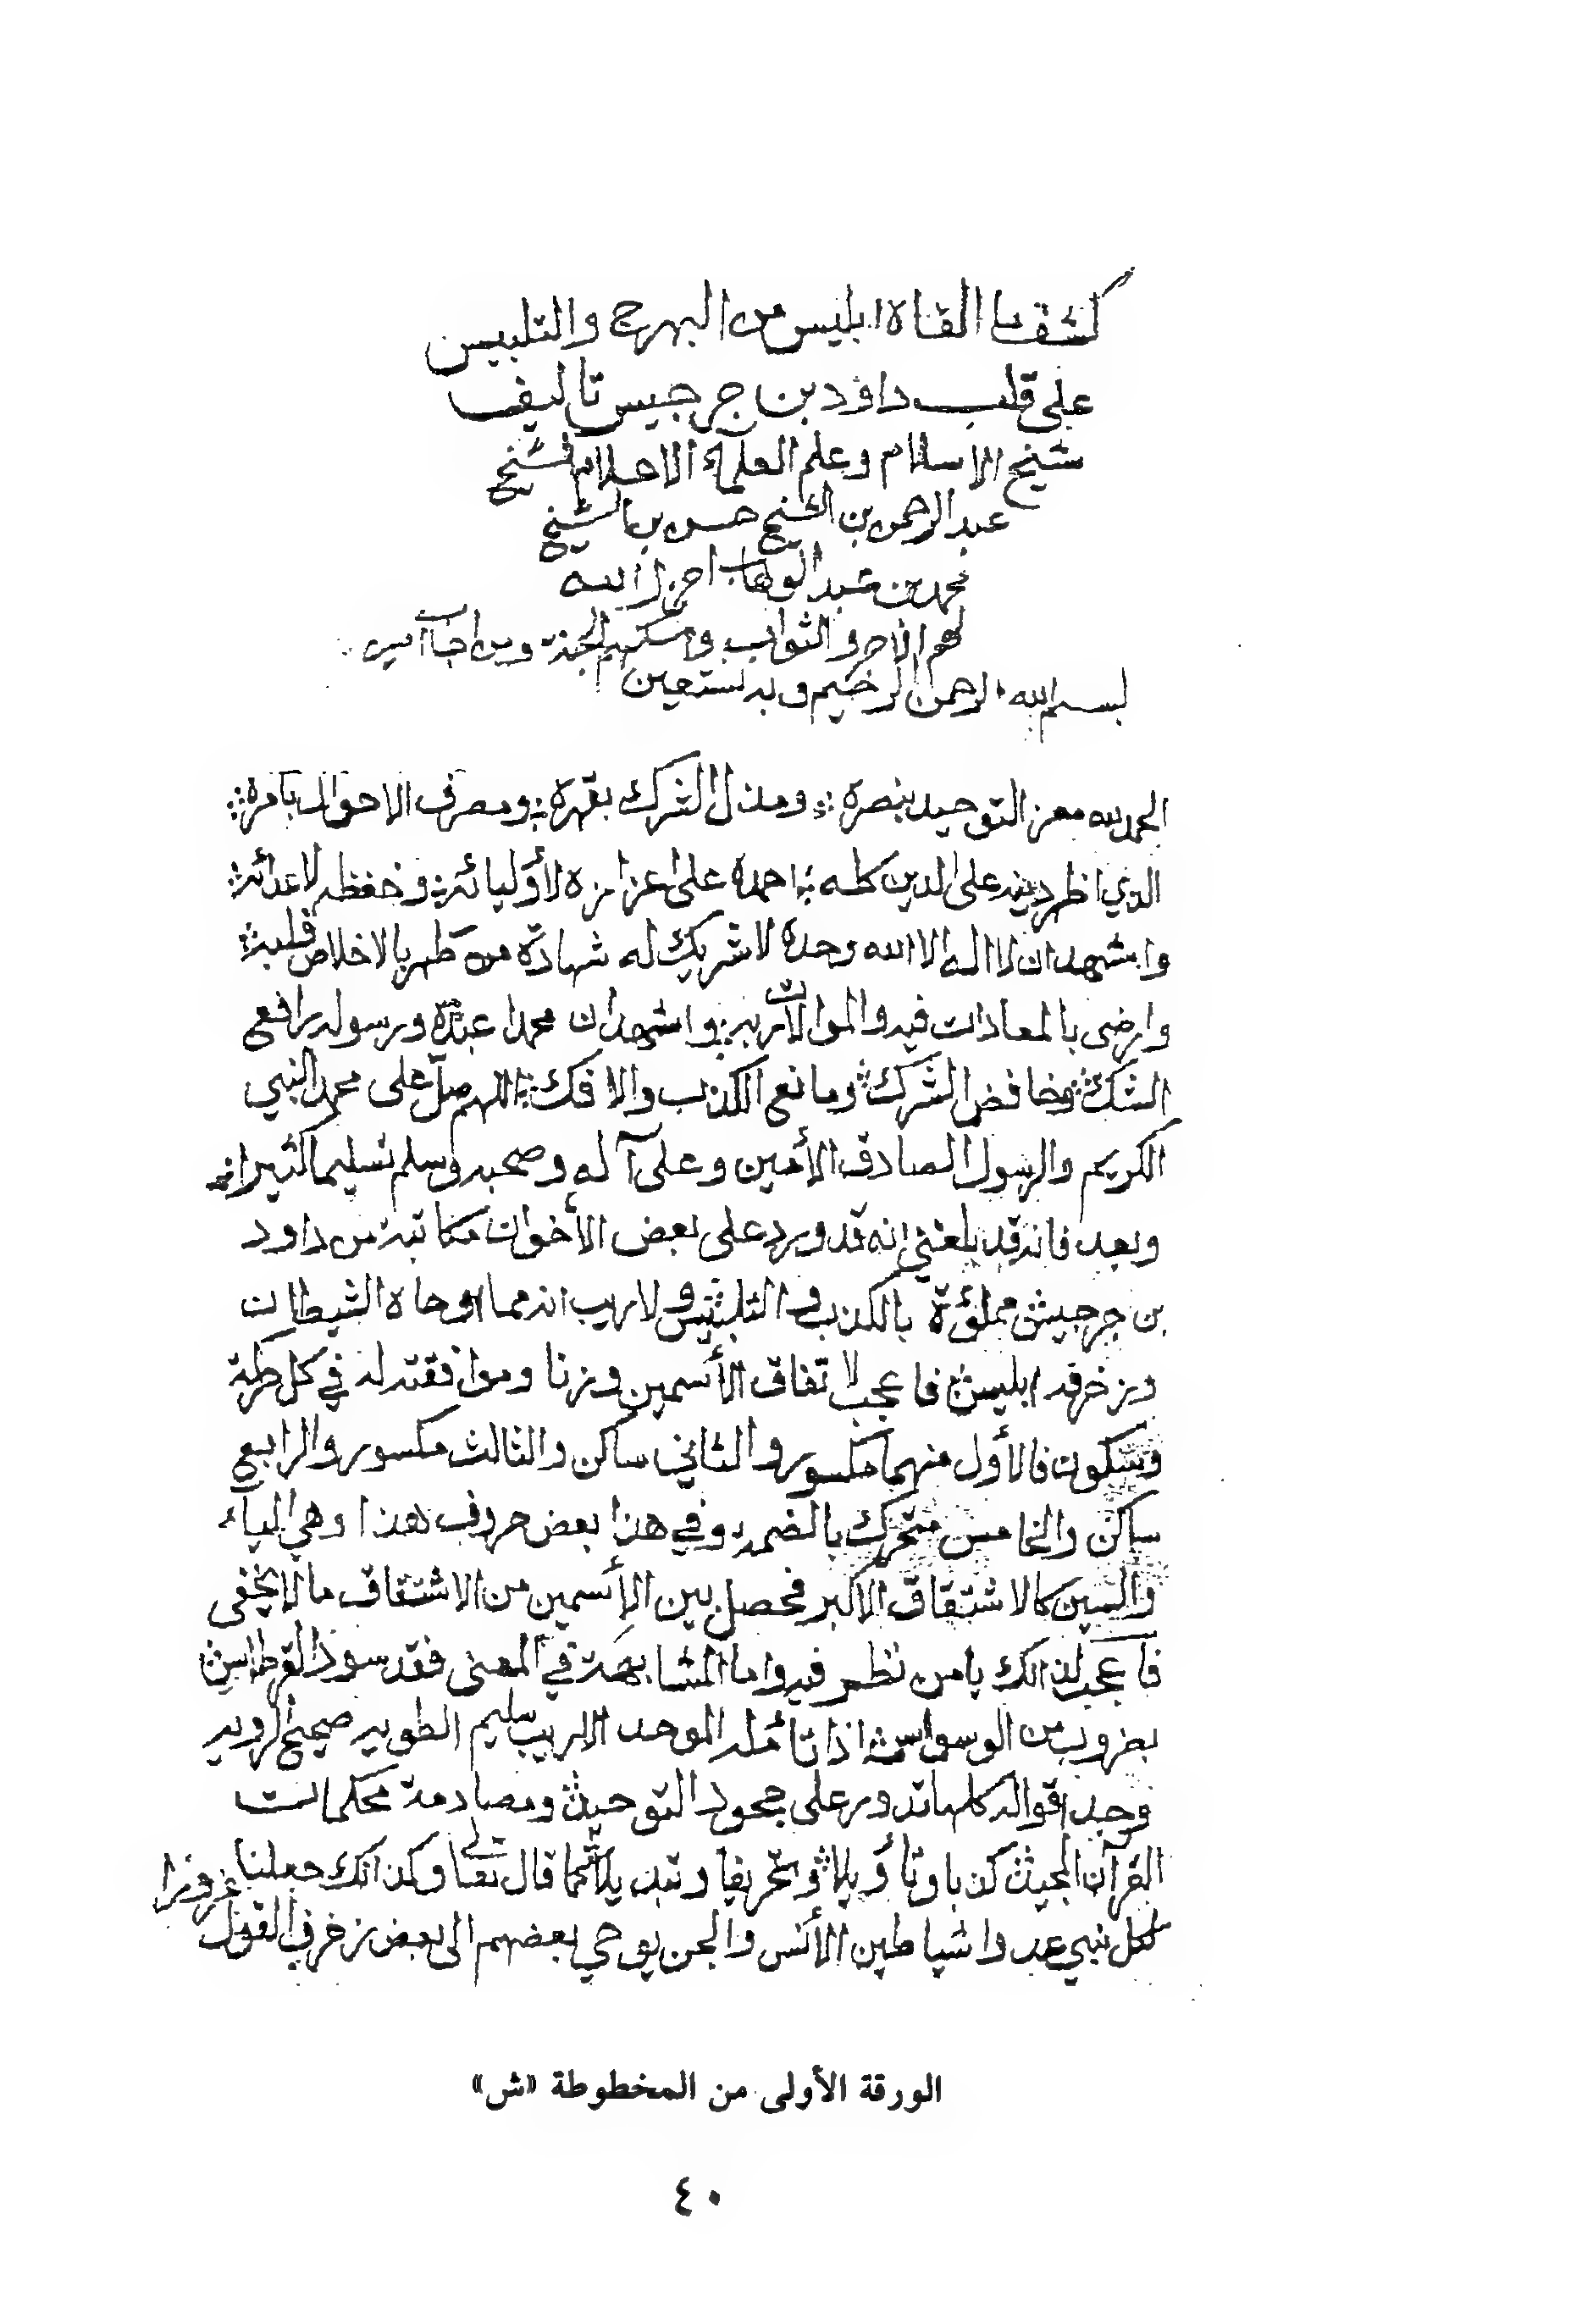 كشف ما القاه ابليس من البهرج والتلبيس
على قلب داود بن جرجيس تاليف
شيخ الاسلام وعلم العلمآء الاعلام الشيخ
عبد الرحمن بن الشيخ حسن بن الشيخ
محمد بن عبد الوهاب اجزل الله
لهم الاجر والثواب واسكنهم الجنة ومن اجاب آمين
بسم الله الرحمن الرحيم وبه نستعين
الحمد لله معز التوحيد بنصره ومذل الشرك بقهره ومصرف الاحوال بأمره
الذي اظهر دينه على الدين كله احمده على اعزازه لأوليائه وخفظه لاعدائه
واشهد ان لا اله الا الله وحده لا شريك له شهادة من طهر بالاخلاص قلبه
وارضى بالمعادات فيه والموالات ربه واشهد ان محمدا عبده ورسوله رافع
الشك وخافض الشرك ومانع الكذب والافك اللهم صل على محمد النبي
الكريم والرسول الصادق الأمين وعلى آله وصحبه وسلم تسليما كثيرا
وبعد فانه قد بلغني إنه قد ورد على بعض الأخوان مكاتبة من داود
بن جرجيس مملؤة بالكذب والتلبيس ولا ريب انه مما اوحاه الشيطان
وزخرفه ابليس فاعجب لاتفاق الأسمين وزنا وموافقته له في كل حركة
وسكون فالأول منهما مكسور والثاني ساكن والثالث مكسور والرابع
ساكن والخامس متحرك بالضمة وفي هذا بعض حروف هذا وهي الياء
والسين كالاشتقاق الاكبر فحصل بين الإسمين من الاشتقاق ما لا يخفى
فاعجب لذالك يا من نظر فيه واما المشابهة في المعنى فقد سود القرطاس
بضروب من الوسواس اذا تأمله الموحد الاريب سليم الطويه صحيح الرويه
وجد اقواله كلها تدور على جحود التوحيد ومصادمة محكمات
القرآن المجيد كذبا وتأويلا وتحريفا وتبديلا كما قال تعالى وكذالك جعلنا
لكل نبي عدوا شياطين الأنس والجن يوحي بعضهم الى بعض زخرف القول غرورا
الورقة الأولى من المخطوطة «ش»
٤٠